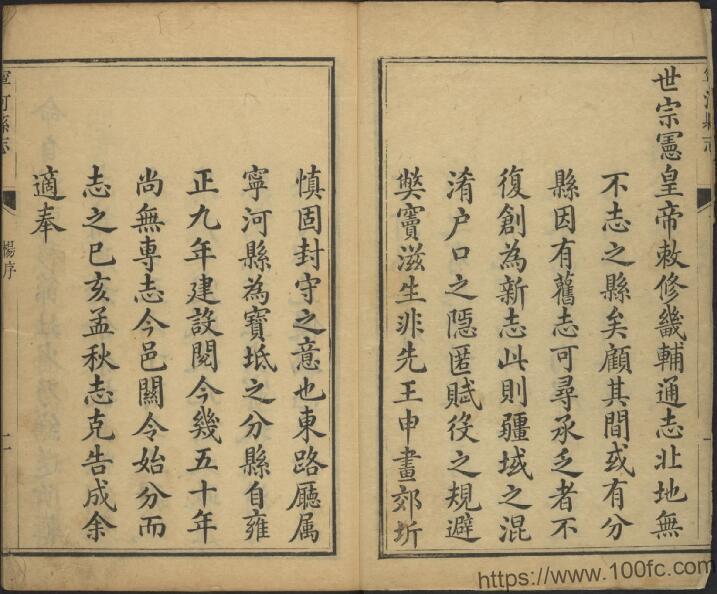 世宗憲皇帝敕修畿輔通志北地無
不志之縣矣顧其間或有分
縣因有舊志可尋承乏者不
復創為新志此則疆域之混
淆户口之隱匿賦役之規避
獘竇滋生非先王申畫郊圻
慎固封守之意也東路廳属
寧河縣為寶坻之分縣自雍
正九年建設閱今幾五十年
尚無專志今邑關令始分而
志之已亥孟秋志克告成余
適奉
寧河縣志
楊序
二
https://www.100fc.com